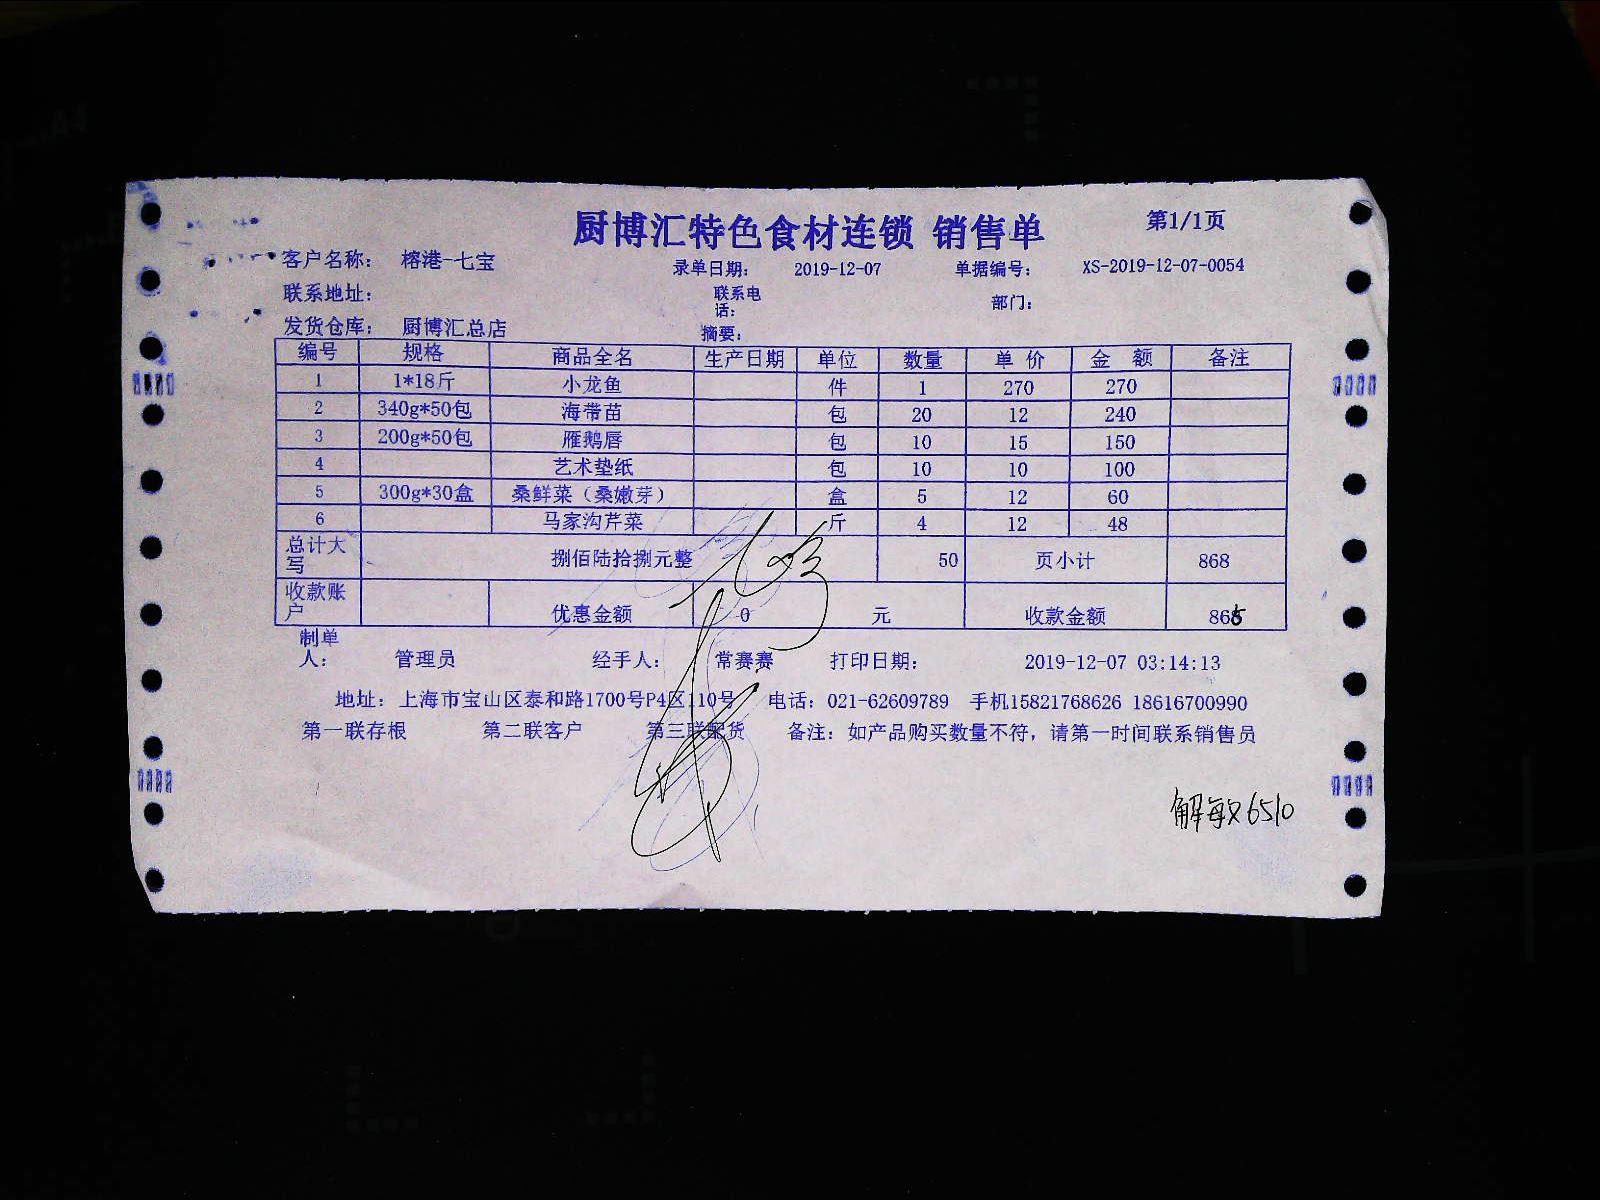 厨博汇特色食材连锁 销售单 第1/1页
客户名称： 榕港-七宝 录单日期： 2019-12-07 单据编号： XS-2019-12-07-0054
联系地址： 联系电话： 部门：
发货仓库： 厨博汇总店 摘要：
编号 规格 商品全名 生产日期 单位 数量 单 价 金 额 备注
1 1*18斤 小龙鱼 件 1 270 270
2 340g*50包 海带苗 包 20 12 240
3 200g*50包 雁鹅唇 包 10 15 150
4 艺术垫纸 包 10 10 100
5 300g*30盒 桑鲜菜（桑嫩芽） 盒 5 12 60
6 马家沟芹菜 斤 4 12 48
总计大写 捌佰陆拾捌元整 50 页小计 868
收款账户 优惠金额 0 元 收款金额
制单人： 管理员 经手人： 常赛赛 打印日期： 2019-12-07 03:14:13
地址：上海市宝山区泰和路1700号P4区110号 电话：021-62609789 手机15821768626 18616700990
第一联存根 第二联客户 第三联配货 备注：如产品购买数量不符，请第一时间联系销售员
解敏6510